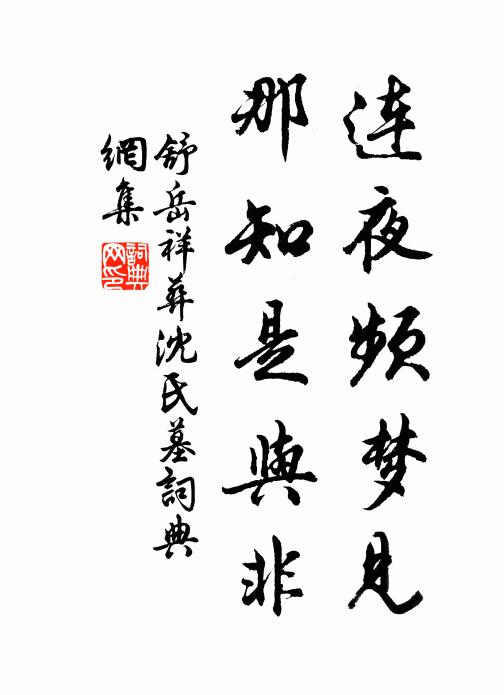 连夜频梦见
那知是與非
舒岳祥葬沈氏墓詞典
網集
詞典网印